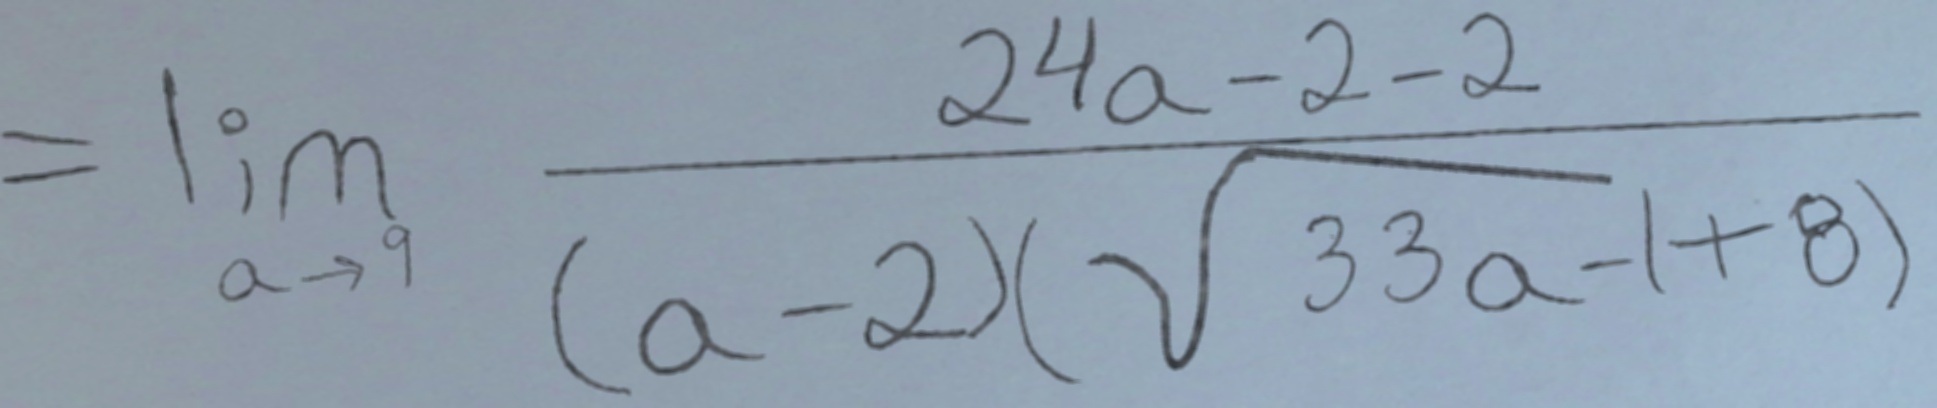 = lim_{a→9} \frac{24a-2-2}{(a-2)(\sqrt{33a}-1+8)}